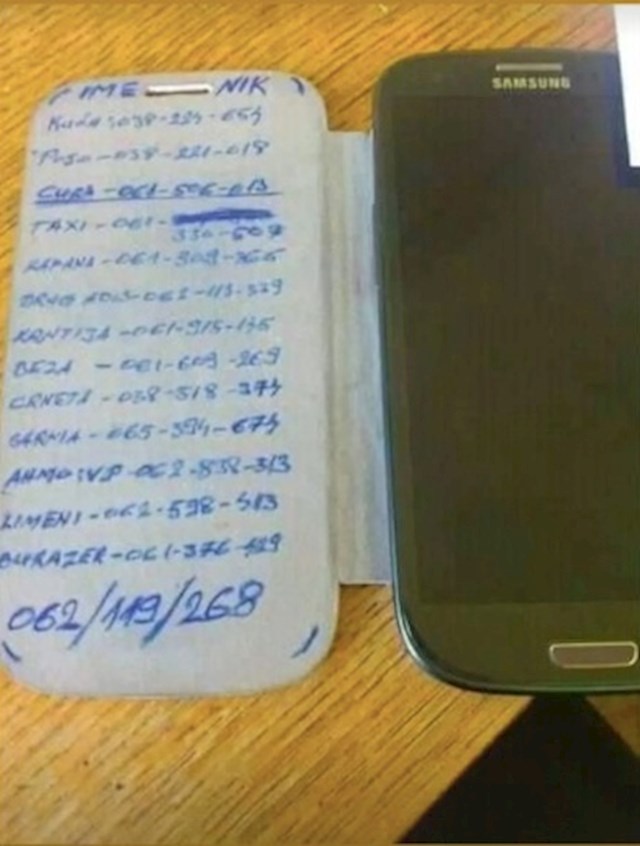 IME NIK
Kuća: 038-224-654
038-221-018
CURA-061-506-013
TAXI-061-
330-607
061-909-366
062-113-339
KANTIJA-061-915-135
BEZA - 061-609-269
CRNETA-038-518-374
GARNIA-065-394-674
AHMO:VP-062-838-313
LIMENI-062-598-413
BURAZER-061-376-129
062/119/268
SAMSUNG